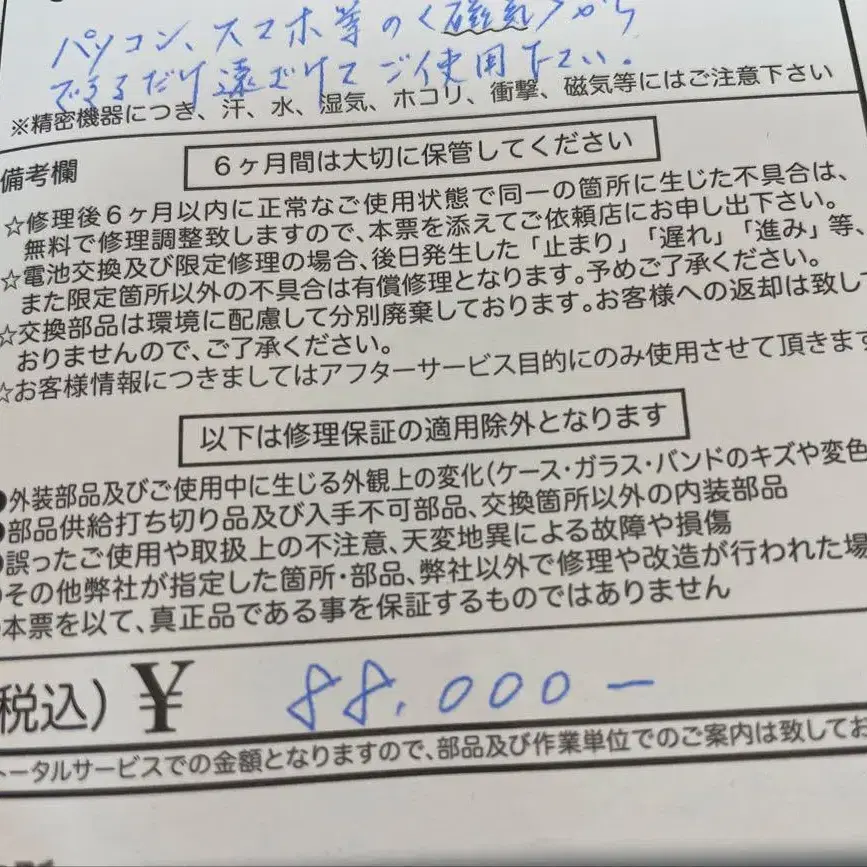 パソコン、スマホ等の〈磁気〉から
できるだけ遠ざけてご使用下さい。
※精密機器につき、汗、水、湿気、ホコリ、衝撃、磁気等にはご注意下さい
備考欄
6ヶ月間は大切に保管してください
☆修理後6ヶ月以内に正常なご使用状態で同一の箇所に生じた不具合は、
無料で修理調整致しますので、本票を添えてご依頼店にお申し出下さい。
☆電池交換及び限定修理の場合、後日発生した「止まり」「遅れ」「進み」等、
また限定箇所以外の不具合は有償修理となります。予めご了承ください。
☆交換部品は環境に配慮して分別廃棄しております。お客様への返却は致して
おりませんので、ご了承ください。
☆お客様情報につきましてはアフターサービス目的にのみ使用させて頂きます
以下は修理保証の適用除外となります
●外装部品及びご使用中に生じる外観上の変化(ケース・ガラス・バンドのキズや変色
●部品供給打ち切り品及び入手不可部品、交換箇所以外の内装部品
●誤ったご使用や取扱上の不注意、天変地異による故障や損傷
●その他弊社が指定した箇所・部品、弊社以外で修理や改造が行われた場
●本票を以て、真正品である事を保証するものではありません
税込) ¥ 88.000-
トータルサービスでの金額となりますので、部品及び作業単位でのご案内は致してお